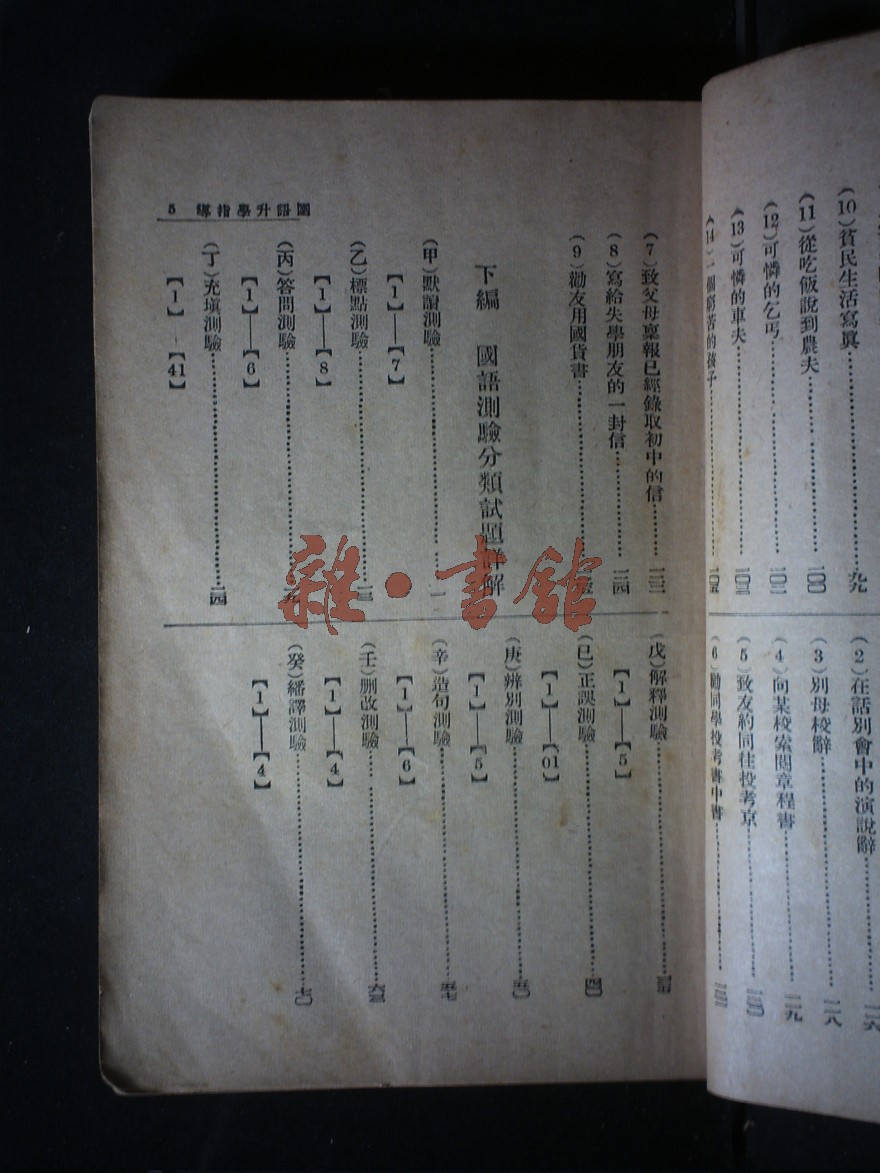 (10)貧民生活寫眞……九九
(11)從吃飯說到農夫……一〇〇
(12)可憐的乞丐……一〇二
(13)可憐的車夫……一〇三
(14)一個窮苦的孩子……一〇五
(2)在話別會中的演說辭……一一六
(3)別母校辭……一一八
(4)向某校索閱章程書……一一九
(5)致友約同往投考京……一二〇
(6)勸同學投考書中書
國語升學指導 5
(7)致父母稟報已經錄取初中的信
(8)寫給失學朋友的一封信……一二四
(9)勸友用國貨書
下編 國語測驗分類試題詳解
(甲)默讀測驗……一
【1】——【7】
(乙)標點測驗……一三
【1】——【8】
(丙)答問測驗……一九
【1】——【6】
(丁)充塡測驗……二四
【1】—【41】
(戊)解釋測驗
【1】——【5】
(已)正誤測驗……四〇
【1】——【01】
(庚)辨別測驗……五〇
【1】——【5】
(辛)造句測驗……五七
【1】——【6】
(壬)刪改測驗……六三
【1】——【4】
(癸)繙譯測驗……七〇
【1】——【4】
雜·書館